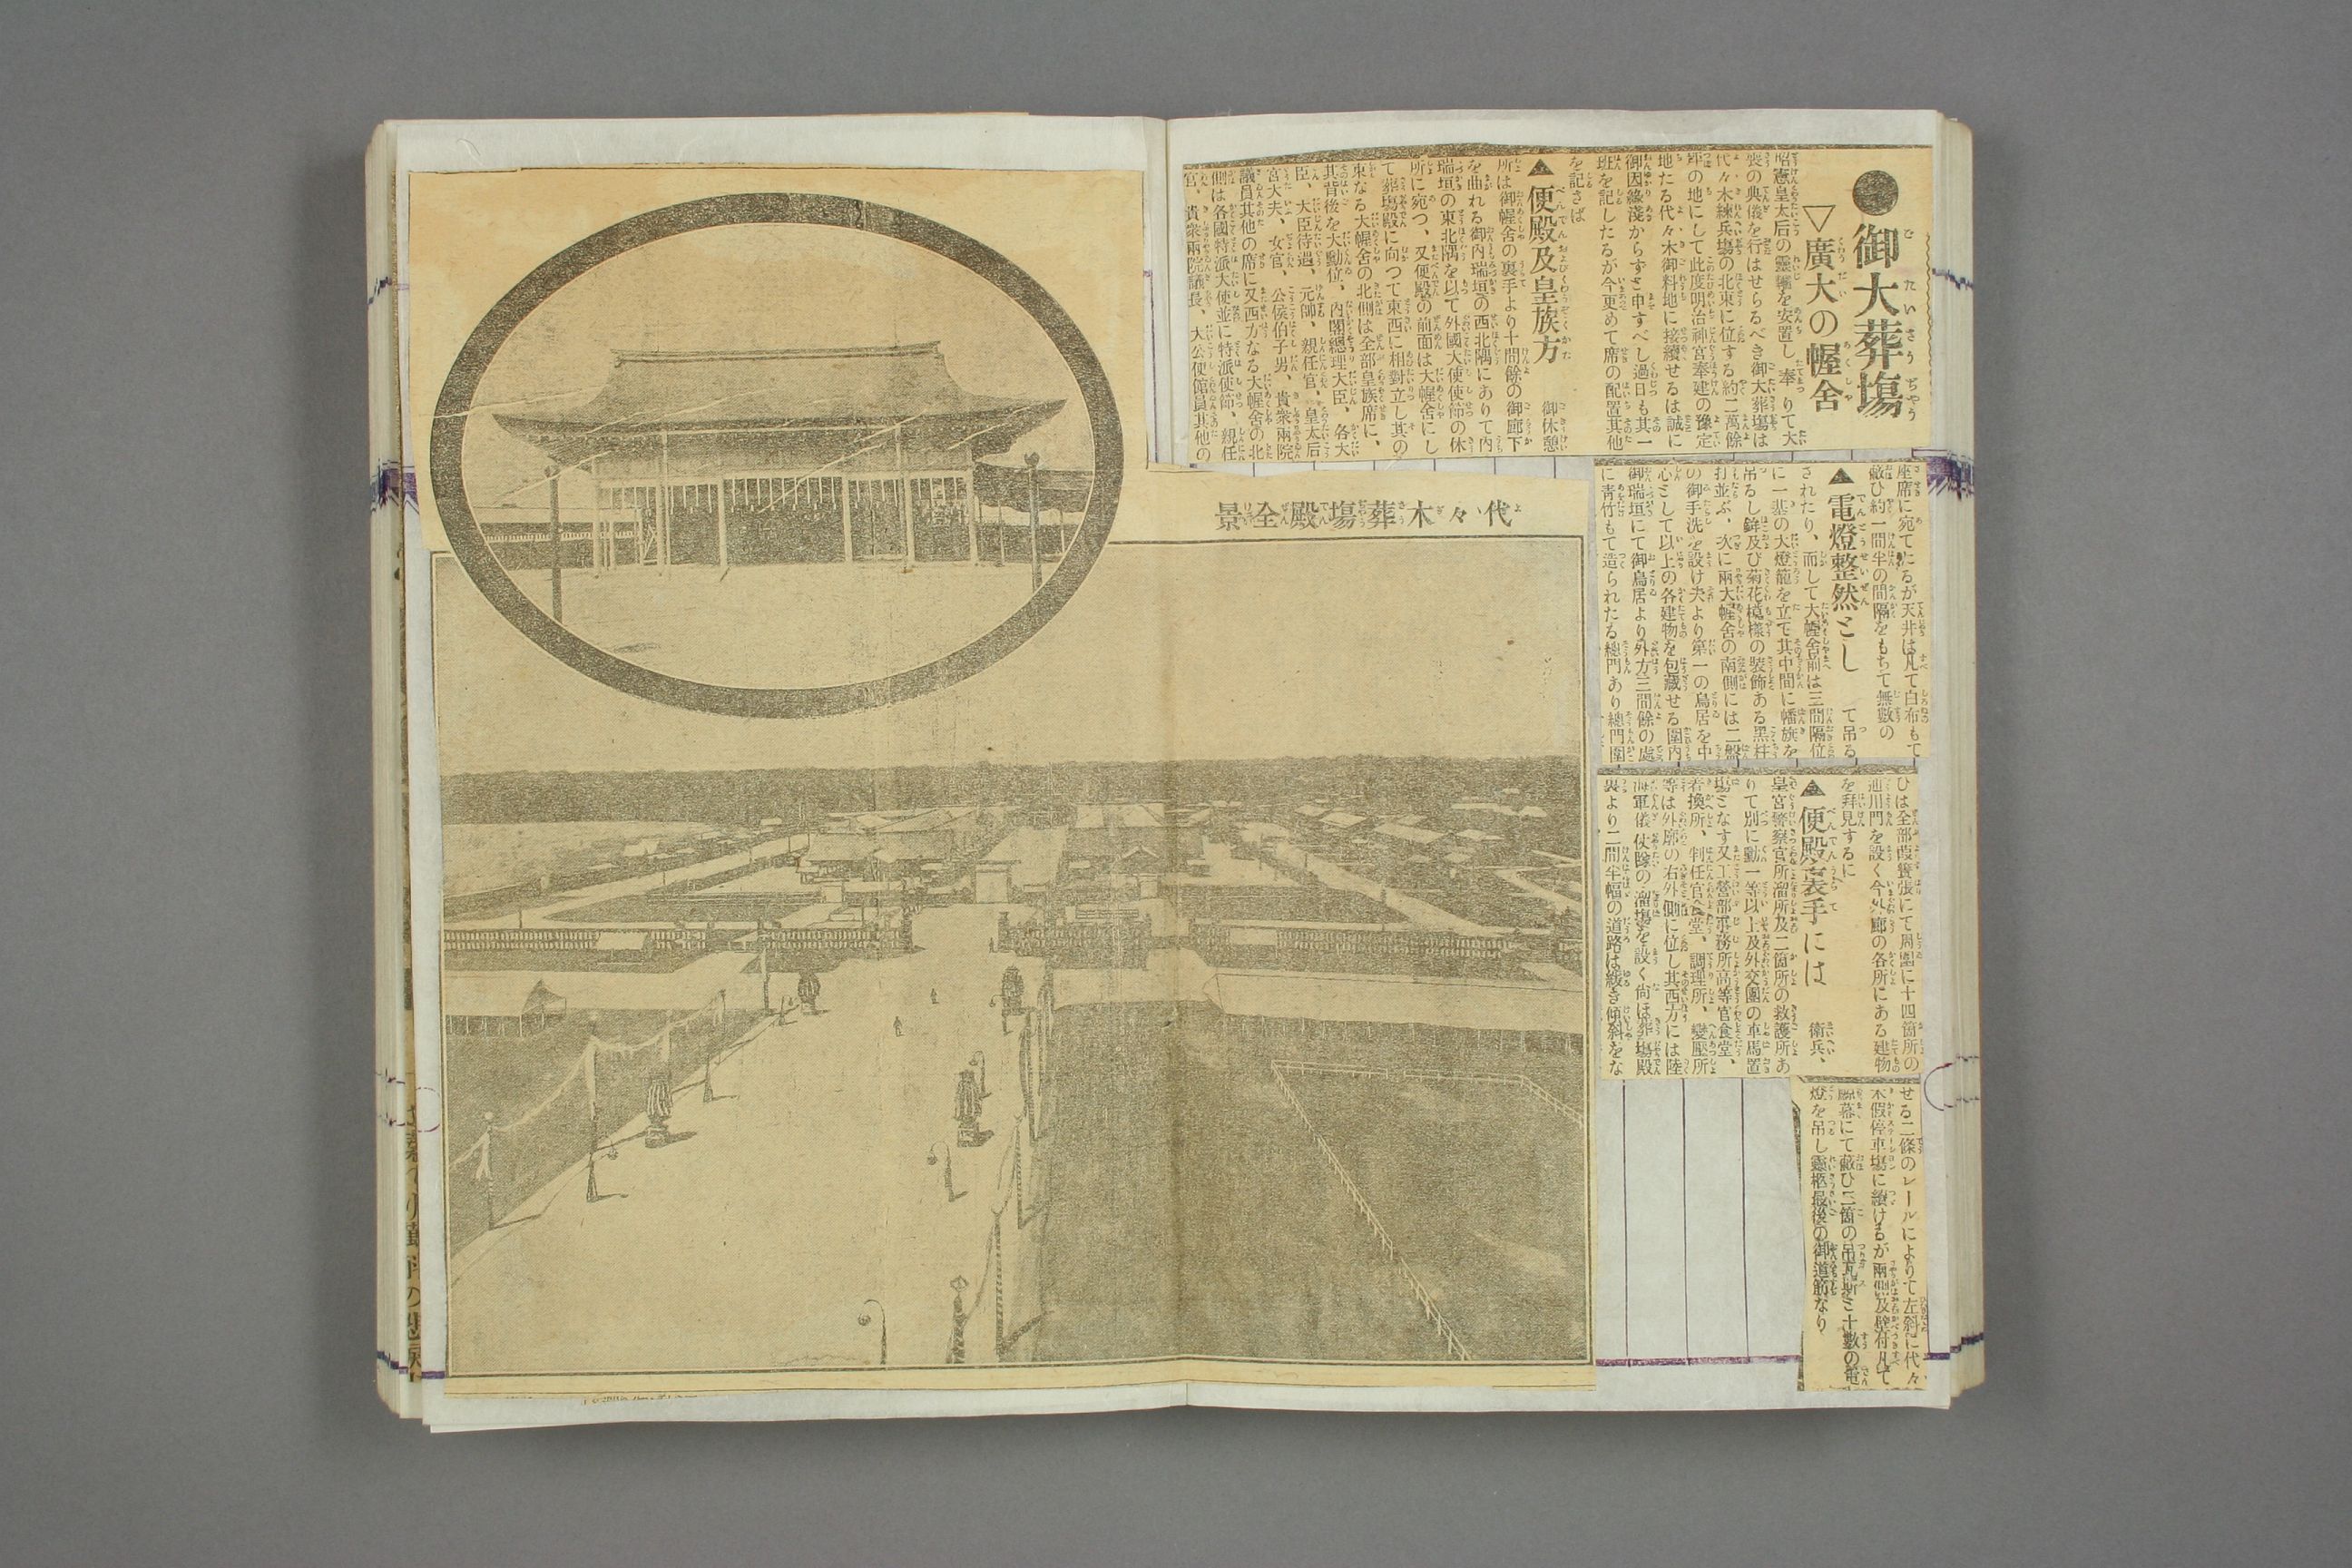 ●御大葬塲
▽廣大の幄舍
昭憲皇太后の靈轜を安置し奉りて大
喪の典儀を行はせらるべき御大葬塲は
代々木練兵塲の北東に位する約二萬餘
坪の地にして此度明治神宮奉建の豫定
地たる代々木御料地に接續せるは誠に
御因緣淺からずと申すべし過日も其一
班を記したるが今更めて席の配置其他
を記さば
▲便殿及皇族方 御休憩
所は御幄舍の裏手より十間餘の御廊下
を曲れる御內瑞垣の西北隅にありて內
瑞垣の東北隅を以て外國大使使節の休
所に宛つ、又便殿の前面は大幄舍にし
て葬塲殿に向つて東西に相對立し其の
東なる大幄舍の北側は全部皇族席に、
其背後を大勳位、內閣總理大臣、各大
臣、大臣待遇、元帥、親任官、皇太后
宮大夫、女官、公侯伯子男、貴衆兩院
議員其他の席に又西方なる大幄舍の北
側は各國特派大使並に特派使節、親任
官、貴衆兩院議長、大公使館員其他の
座席に宛てたるが天井は凡て白布もて
蔽ひ約一間半の間隔をもちて無數の
▲電燈整然とし て吊る
されたり、而して大幄舍前は三間隔位
に一基の大燈籠を立て其中間に幡旗を
吊るし鉾及び菊花模樣の裝飾ある黑柱
打並ぶ、次に兩大幄舍の南側には二盤
の御手洗を設け夫より第一の鳥居を中
心として以上の各建物を包藏せる圍內
御瑞垣にて御鳥居より外方三間餘の處
に靑竹もて造られたる總門あり總門圍
ひは全部葭簀張にて周圍に十四箇所の
通用門を設く今外廊の各所にある建物
を拜見するに
▲便殿裏手には 衞兵、
皇宮警察官所溜所及二箇所の救護所あ
りて別に勳一等以上及外交團の車馬置
塲となす又工營部事務所高等官食堂、
着換所、判任官食堂、調理所、變壓所
等は外廓の右外側に位し其西方には陸
海軍儀仗隊の溜塲を設く尙ほ葬塲殿
裏より二間半幅の道路は緩き傾斜をな
せる二條のレールによりて左斜に代々
木假停車塲に續けるが兩側及壁有凡て
幕にて蔽ひ三箇の吊瓦斯と十數の電
燈を吊し靈柩最後の御道筋なり
代々木葬塲殿全景